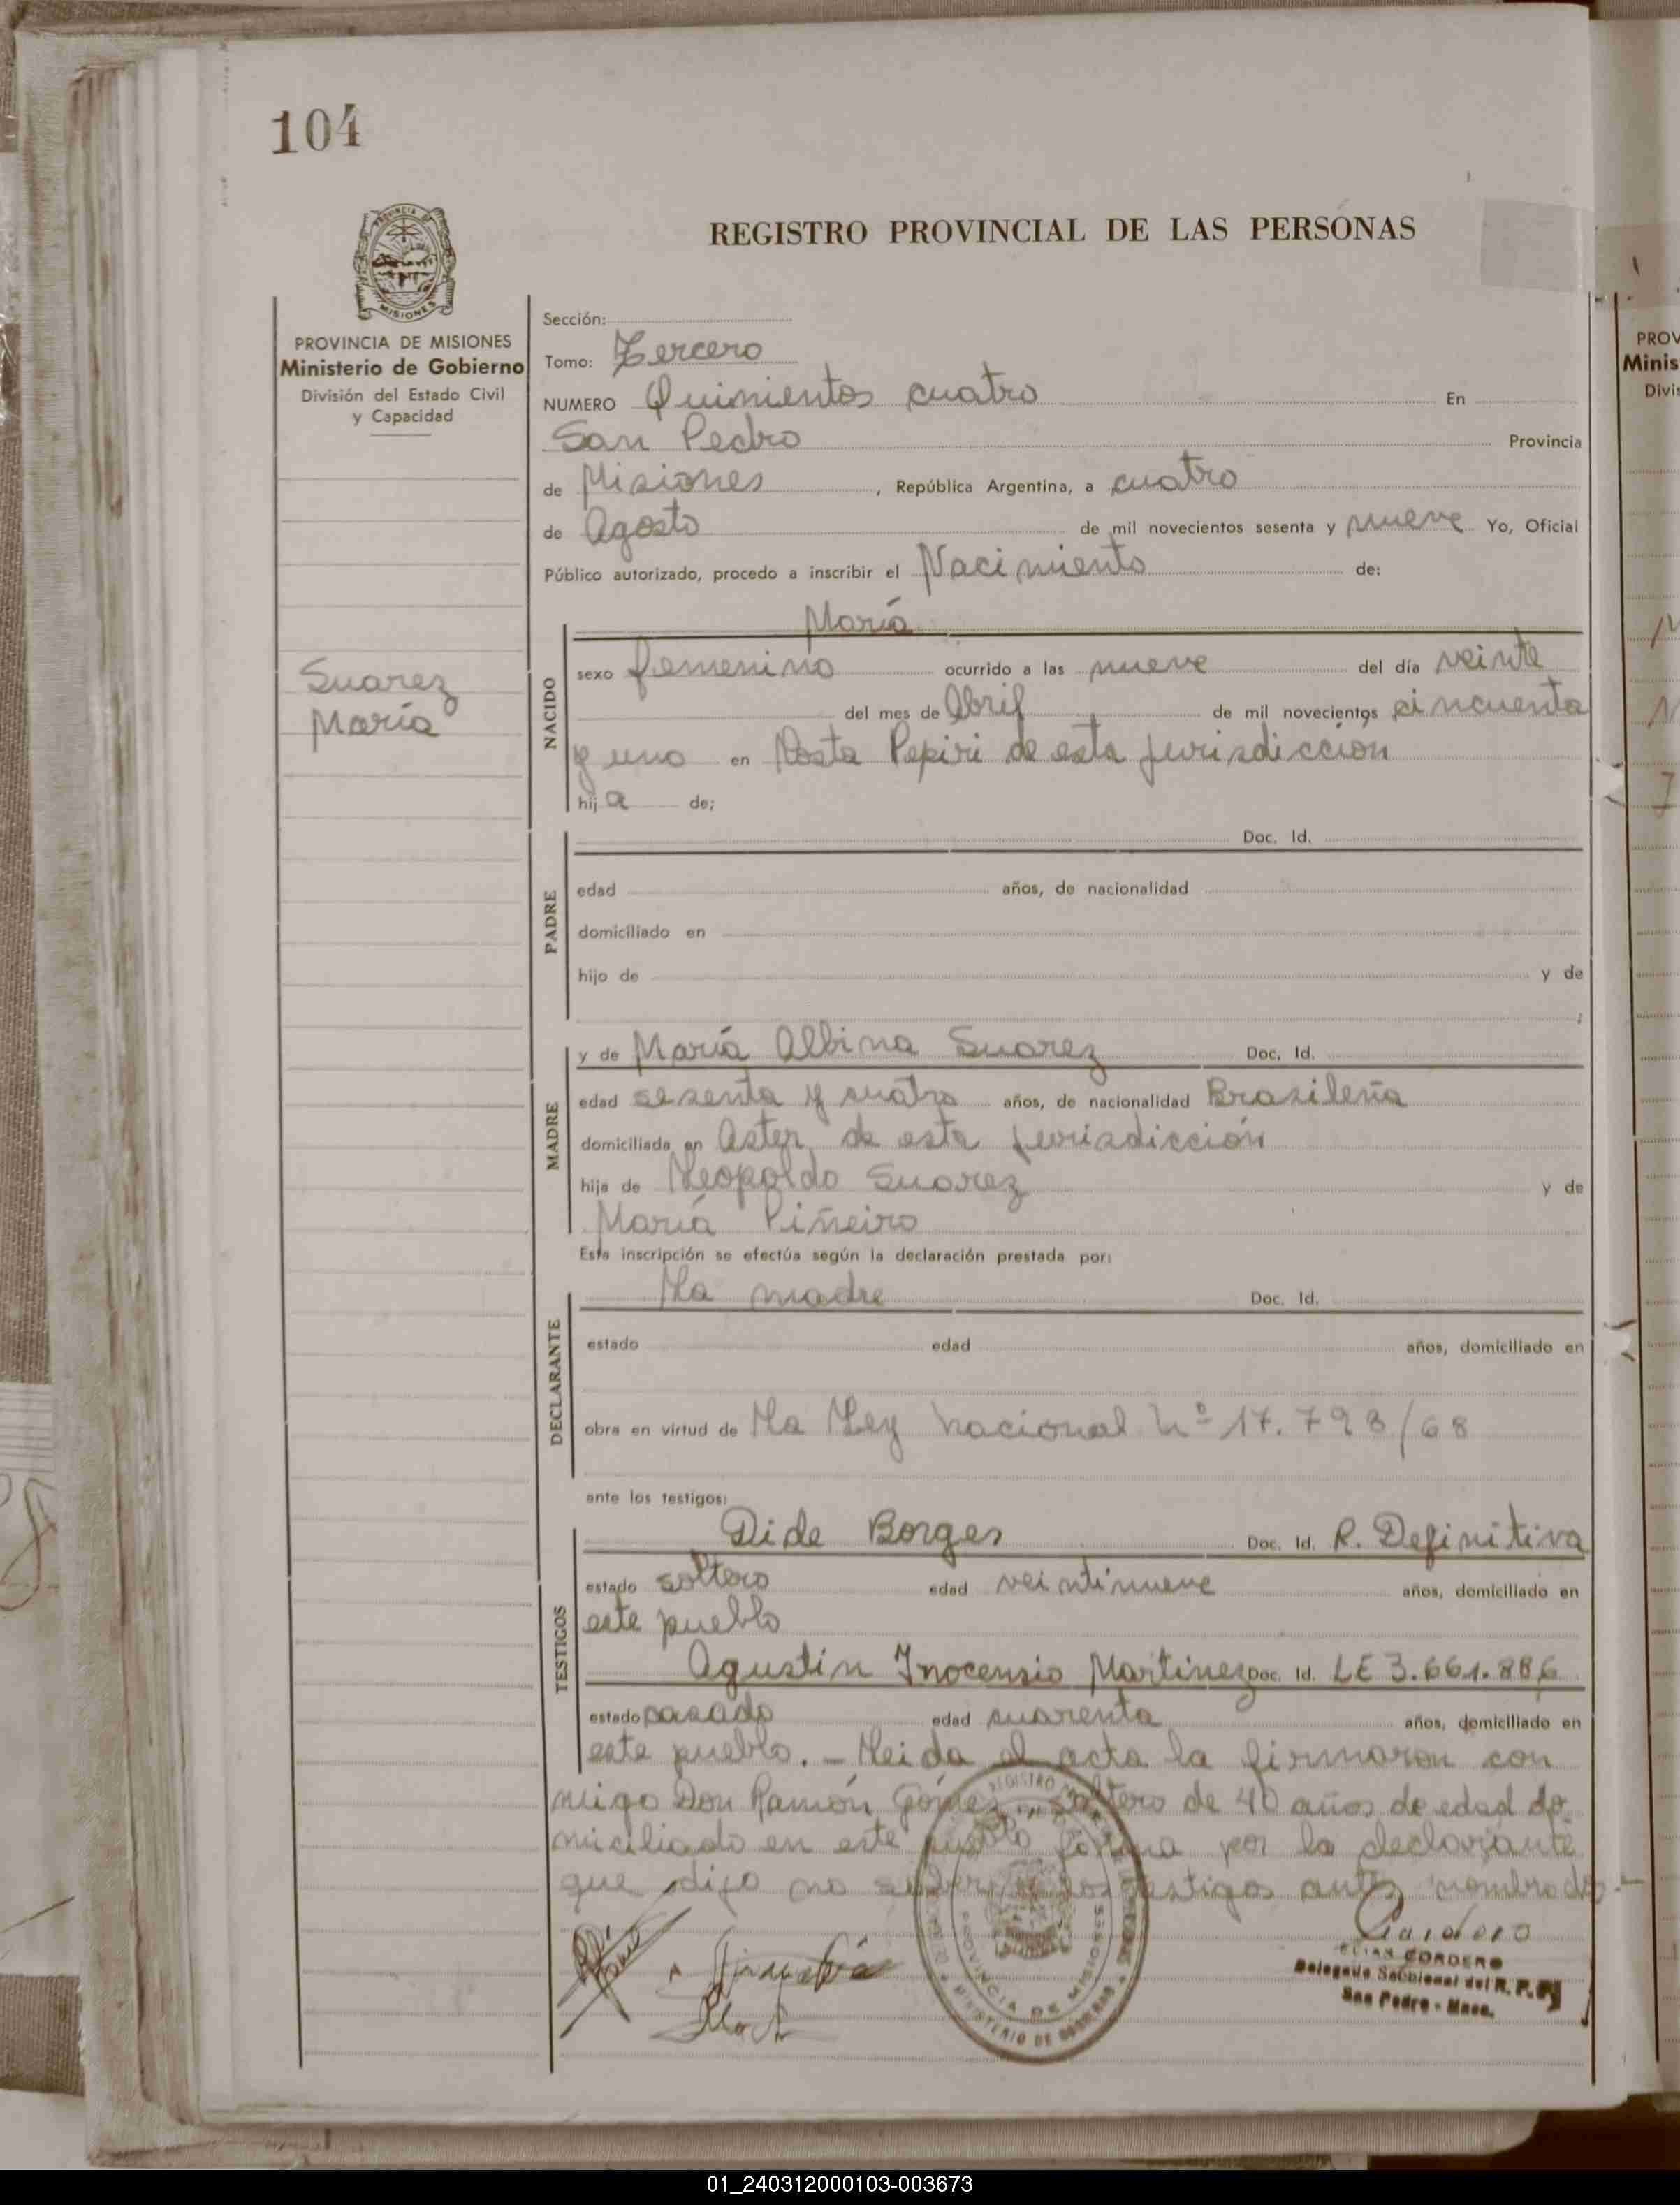 104
REGISTRO PROVINCIAL DE LAS PERSONAS
MISIONES
PROVINCIA DE MISIONES
Ministerio de Gobierno
División del Estado Civil
y Capacidad
Suarez
María
Sección:
Tomo: Tercero
NUMERO Quinientos cuatro En
San Pedro Provincia
de Misiones, República Argentina, a cuatro
de Agosto de mil novecientos sesenta y nueve Yo, Oficial
Público autorizado, procedo a inscribir el Nacimiento de:
María
NACIDO
sexo femenino ocurrido a las nueve del día veinte
del mes de Abril de mil novecientos cincuenta
y uno en Costa Pepiri de esta jurisdicción
hija de;
PADRE
Doc. Id.
edad años, de nacionalidad
domiciliado en
hijo de y de
;
MADRE
y de María Albina Suarez Doc. Id.
edad sesenta y cuatro años, de nacionalidad Brasileña
domiciliada en Aster de esta jurisdicción
hija de Leopoldo Suarez y de
María Piñeiro
Esta inscripción se efectúa según la declaración prestada por:
DECLARANTE
La madre Doc. Id.
estado edad años, domiciliado en
obra en virtud de La Ley Nacional Nº 17.793/68
ante los testigos:
TESTIGOS
Dide Borges Doc. Id. R. Definitiva
estado soltero edad veintinueve años, domiciliado en
este pueblo
Agustin Inocensio Martinez Doc. Id. LE 3.661.886
estado casado edad cuarenta años, domiciliado en
este pueblo. - Leida el acta la firmaron con
migo Don Ramón Gómez soltero de 40 años de edad do
miciliado en este pueblo por la declarante
que dijo no saber testigos antes nombrados.-
REGISTRO
PROVINCIA DE MISIONES
MINISTERIO DE GOBIERNO
Cordero
ELIAS CORDERO
Delegado Seccional del R. P. P.
San Pedro - Mnes.
PROV
Minis
Divis
01_240312000103-003673